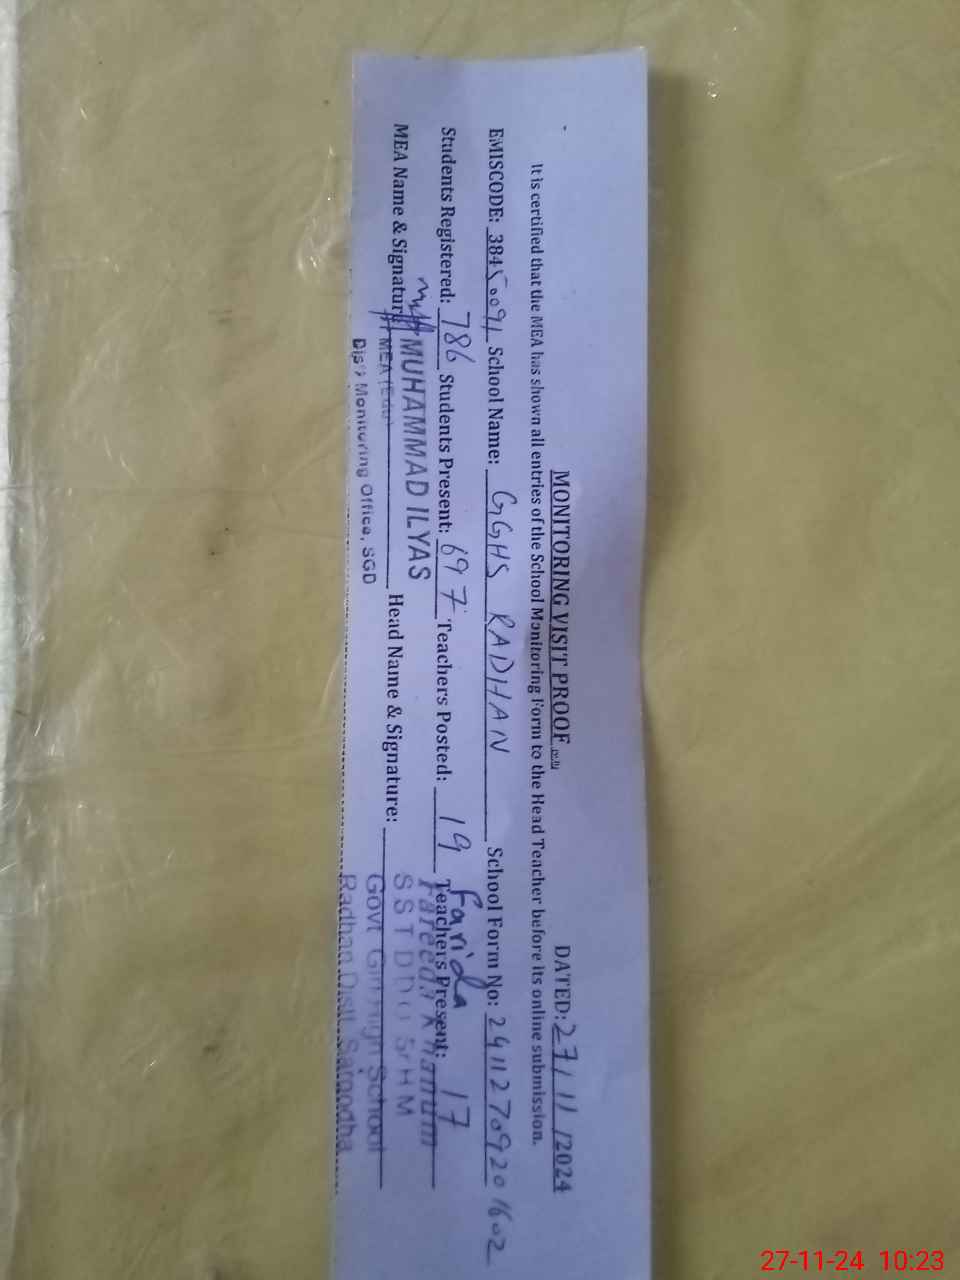 MONITORING VISIT PROOF DATED: 27/11/2024
It is certified that the MEA has shown all entries of the School Monitoring Form to the Head Teacher before its online submission.
EMISCODE: 38450091 School Name: GGHS RADHAN School Form No: 24112709201602
Students Registered: 786 Students Present: 697 Teachers Posted: 19 Teachers Present: 17
Farida
MUHAMMAD ILYAS
Fareeda Khanum
MEA Name & Signature: Head Name & Signature:
MEA (Edu)
SST DDO Sr HM
Distt Monitoring Office, SGD
Govt Girl High School
Radhan Distt Sargodha
27-11-24 10:23